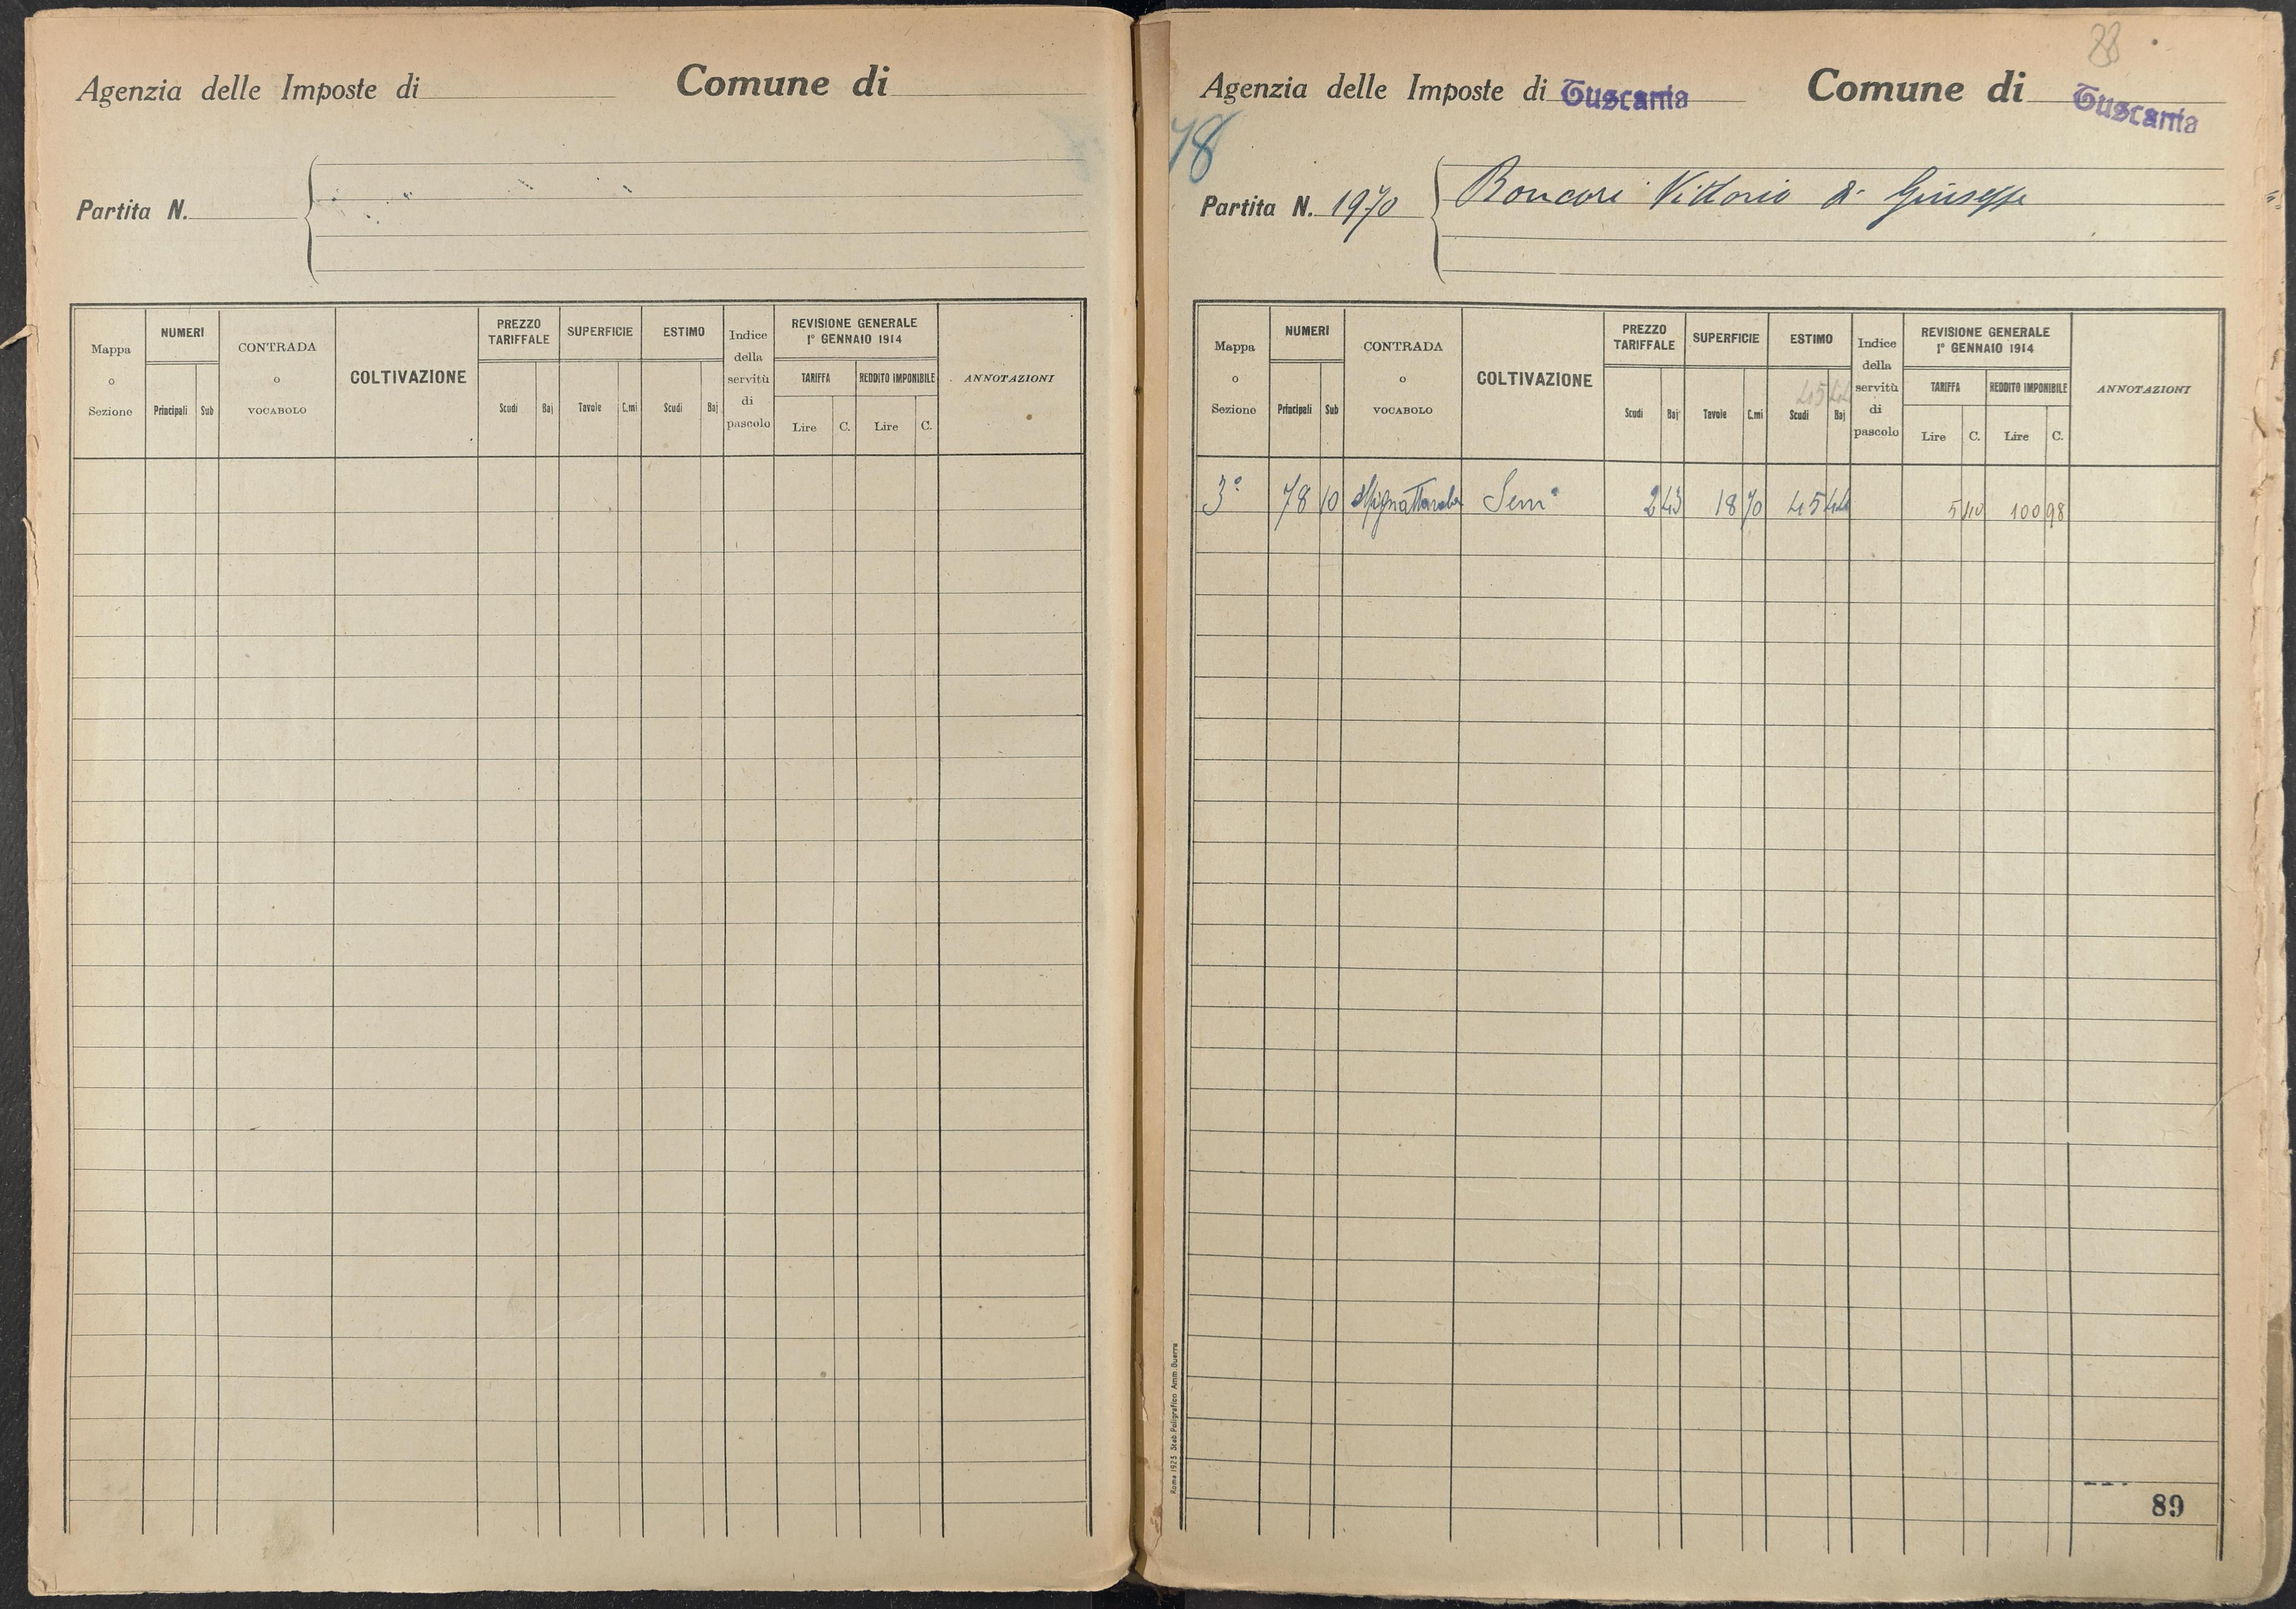 Agenzia delle Imposte di Comune di
Partita N.
Mappa o Sezione NUMERI CONTRADA o VOCABOLO COLTIVAZIONE PREZZO TARIFFALE SUPERFICIE ESTIMO Indice della servitù di pascolo REVISIONE GENERALE 1º GENNAIO 1914 ANNOTAZIONI
TARIFFA REDDITO IMPONIBILE
Principali Sub Scudi Baj Tavole C.mi Scudi Baj Lire C. Lire C.
88
Agenzia delle Imposte di Tuscania Comune di Tuscania
78
Partita N. 1970 Boncori Vittorio di Giuseppe
Mappa o Sezione NUMERI CONTRADA o VOCABOLO COLTIVAZIONE PREZZO TARIFFALE SUPERFICIE ESTIMO Indice della servitù di pascolo REVISIONE GENERALE 1º GENNAIO 1914 ANNOTAZIONI
TARIFFA REDDITO IMPONIBILE
45 44
Principali Sub Scudi Baj Tavole C.mi Scudi Baj Lire C. Lire C.
3º 78 10 Semº 2 43 18 70 45 44 5 40 100 98
Roma 1923 Stab. Poligrafico Amm. Guerra
89